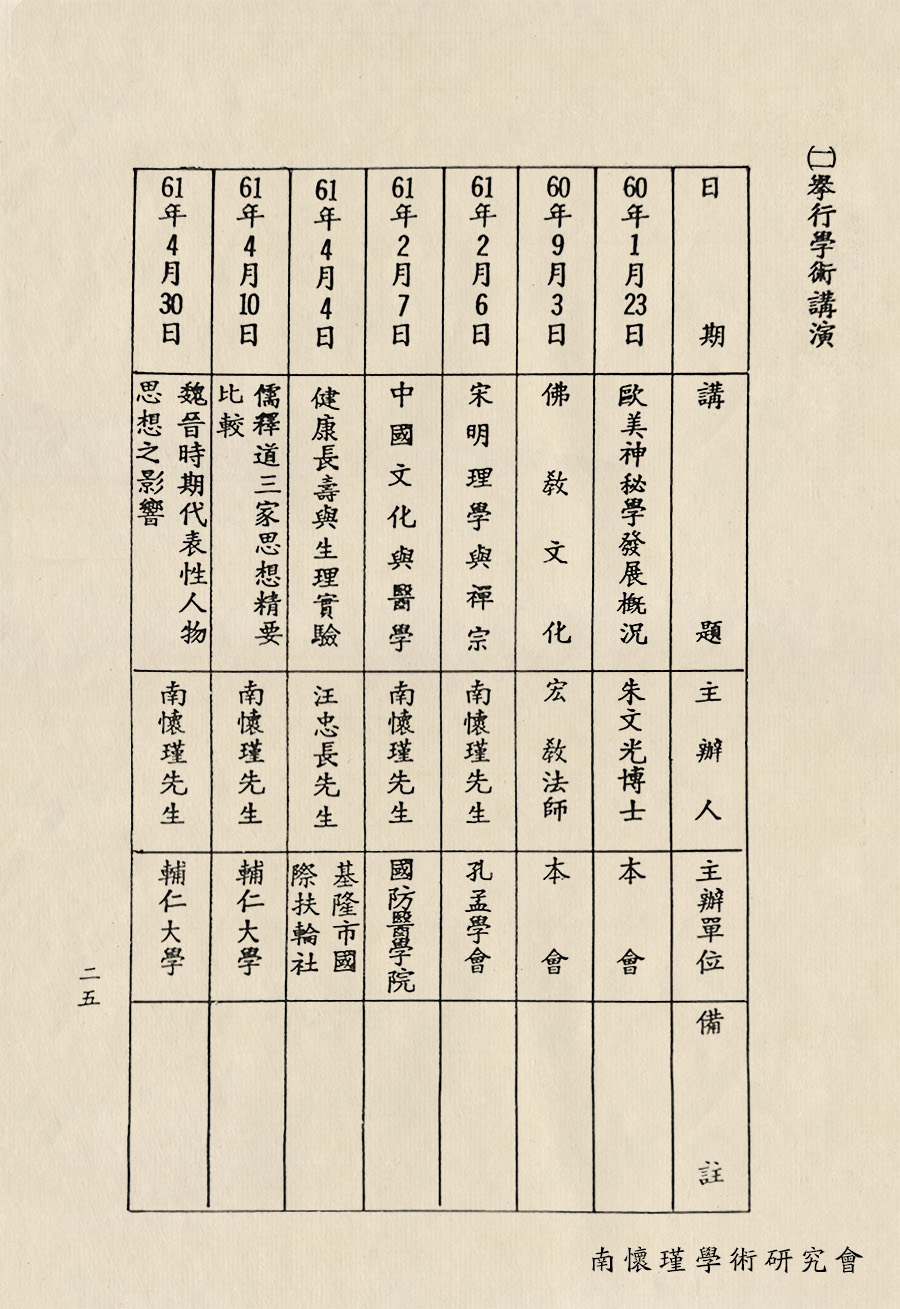 ㈠舉行學術講演
日期
講題
主辦人
主辦單位
備註
60年1月23日
歐美神秘學發展概況
朱文光博士
本會
60年9月3日
佛教文化
宏教法師
本會
61年2月6日
宋明理學與禪宗
南懷瑾先生
孔孟學會
61年2月7日
中國文化與醫學
南懷瑾先生
國防醫學院
61年4月4日
健康長壽與生理實驗
汪忠長先生
基隆市國
際扶輪社
61年4月10日
儒釋道三家思想精要
比較
南懷瑾先生
輔仁大學
61年4月30日
魏晉時期代表性人物
思想之影響
南懷瑾先生
輔仁大學
二五
南懷瑾學術研究會